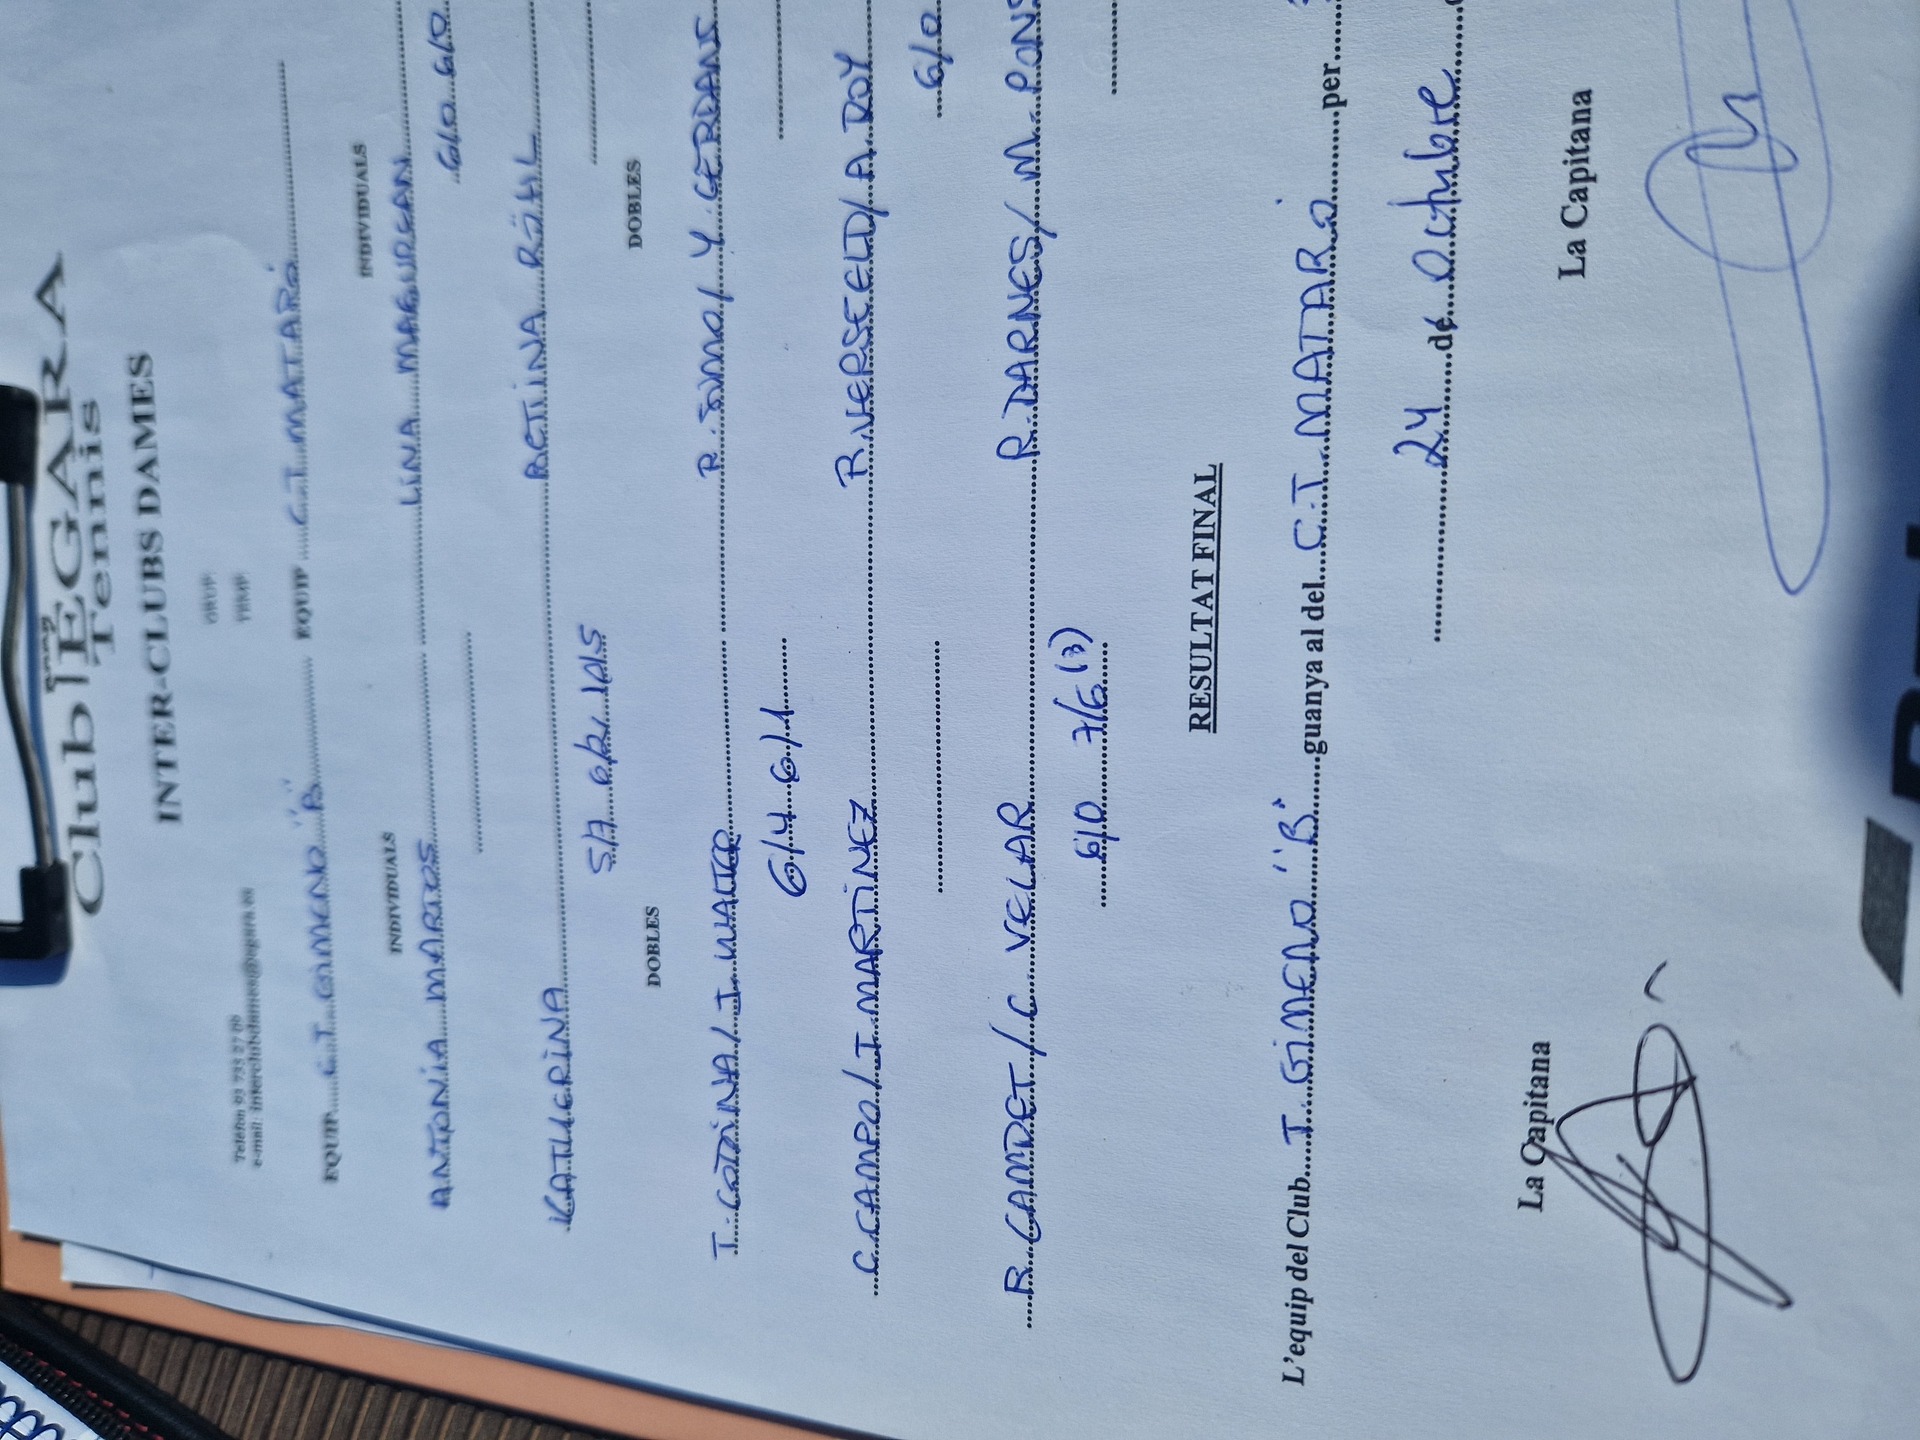 Club EGARA
Tennis
INTER-CLUBS DAMES
GRUP:
Telèfon 93 733 27 00
e-mail: interclubsdames@egara.es
EQUIP C.T. GIMENO "B" EQUIP C.T. MATARÓ
INDIVIDUALS INDIVIDUALS
ANTONIA MARTOS LINA MAGUREAN
6/0 6/0
KATHERINA BETINA RÖHL
5/7 6/2 10/5
DOBLES DOBLES
T. CODINA / I. WALTER R. SIMO / Y. CERDANS
6/4 6/1
C. CAMPO / I MARTÍNEZ R. VERSEELD / A. ROY
6/0
R. CANDET / C. VELAR R. DARNES / M. PONS
6/0 7/6 (3)
RESULTAT FINAL
L'equip del Club T. GIMENO "B" guanya al del C.T MATARÓ per
24 de Octubre
La Capitana La Capitana